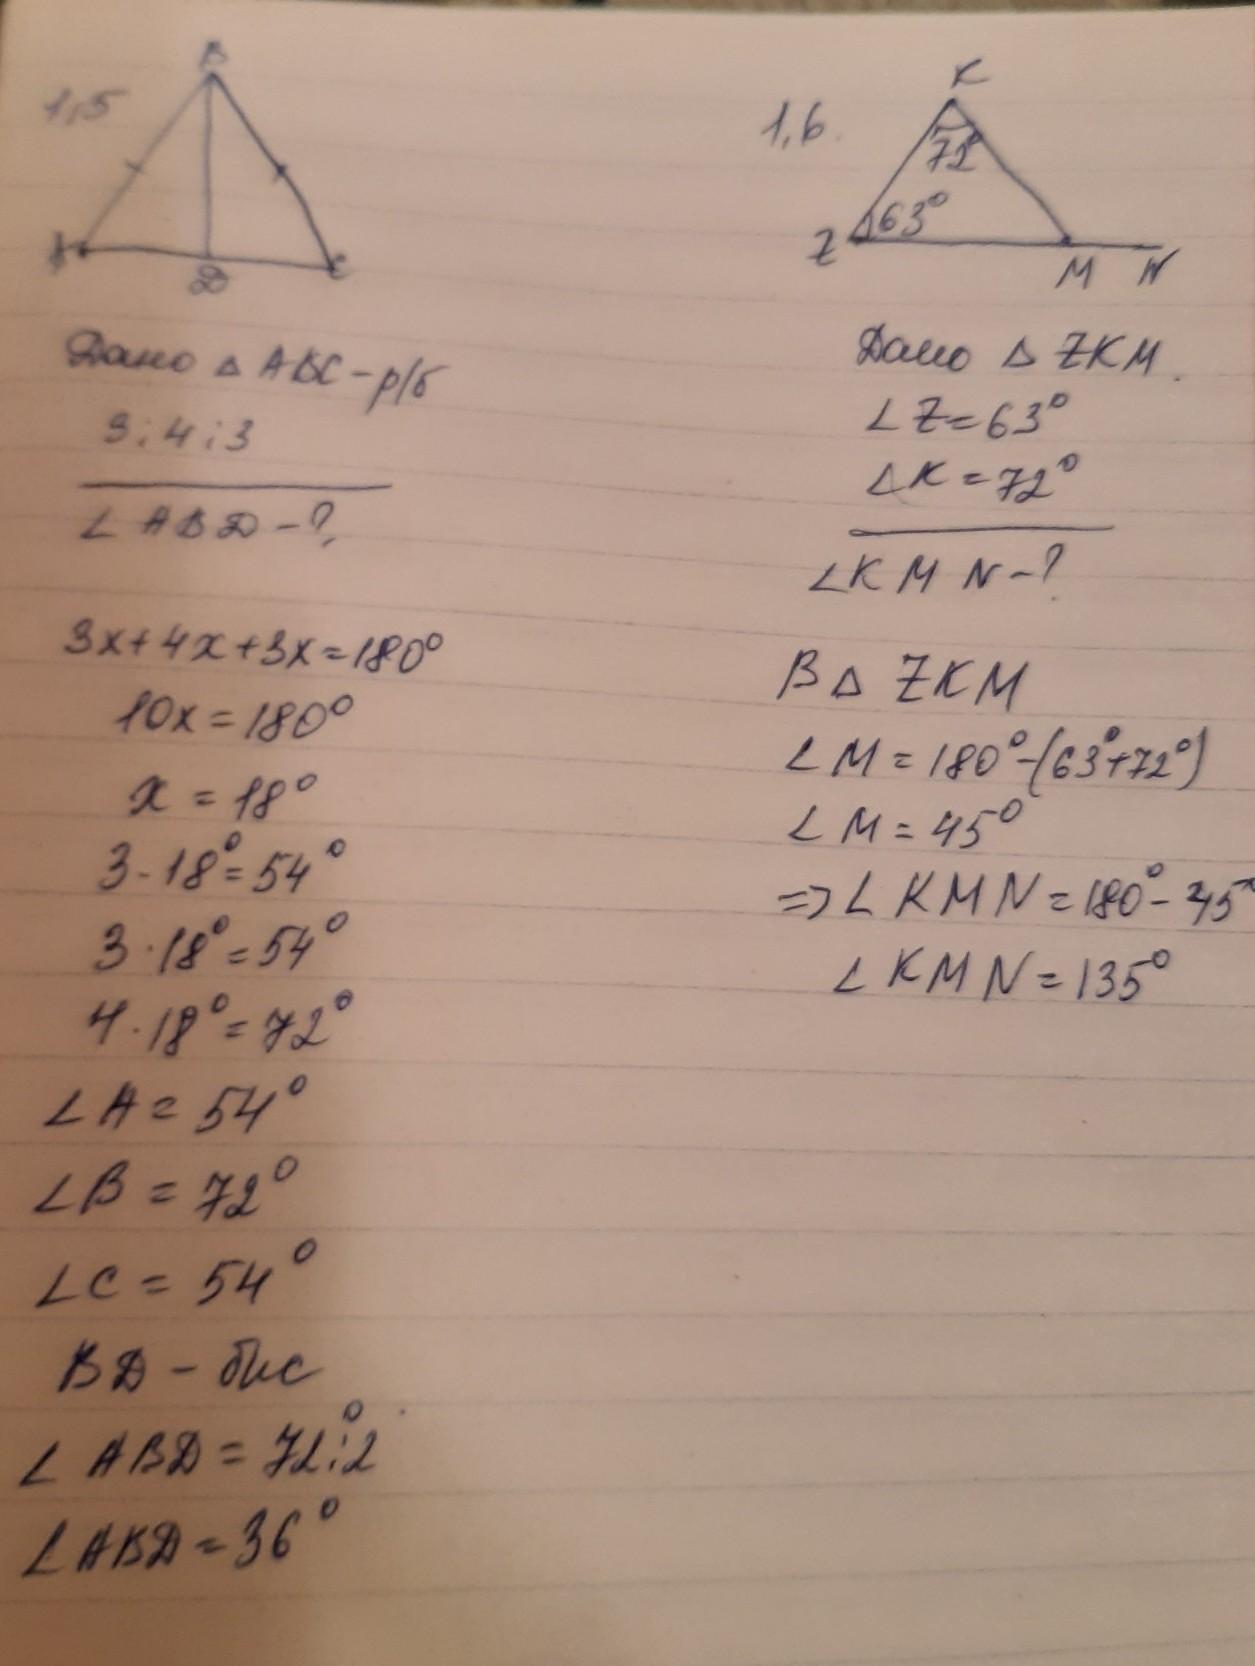 1,5
B
A
D
C
Дано △ ABC - р/б
3:4:3
∠ ABD - ?
3x+4x+3x=180°
10x=180°
x = 18°
3·18°=54°
3·18°=54°
4·18°=72°
∠A = 54°
∠B = 72°
∠C = 54°
BD - бис
∠ ABD = 72°:2
∠ABD = 36°
1,6.
K
72°
63°
Z
M N
Дано △ ZKM.
∠Z=63°
∠K=72°
∠KMN-?
В △ ZKM
∠M = 180°-(63°+72°)
∠M = 45°
=> ∠ KMN = 180°- 45°
∠ KMN = 135°